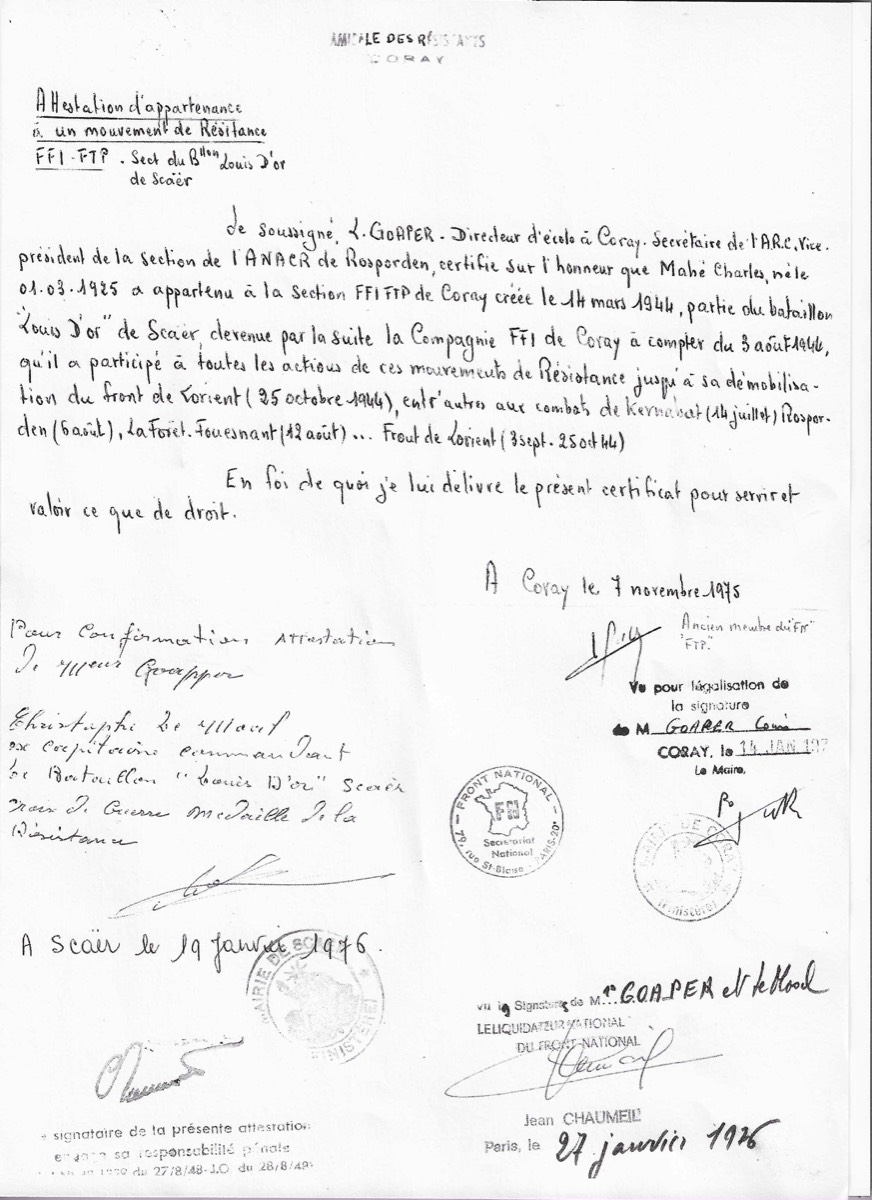 AMICALE DES RÉSISTANTS
CORAY
Attestation d'appartenance
à un mouvement de Résitance
FFI-FTP. Sect du Btlon Louis D'or
de Scaër
Je soussigné, L. GOAPER - Directeur d'école à Coray. Secrétaire de l'A.R.C. Vice.
président de la section de l'ANACR de Rosporden, certifie sur l'honneur que Mahé Charles, né le
01.03.1925 a appartenu à la section FFI FTP de Coray créée le 14 mars 1944, partie du bataillon
"Louis D'or" de Scaër, devenue par la suite la Compagnie FFI de Coray à compter du 3 août 1944,
qu'il a participé à toutes les actions de ces mouvements de Résistance jusqu'à sa démobilisa-
tion du front de Lorient (25 octobre 1944), entr'autres aux combats de Kernabat (14 juillet) Rospor-
den (6 août), La Forêt-Fouesnant (12 août) ... Front de Lorient (3 sept - 25 oct 44)
En foi de quoi je lui délivre le présent certificat pour servir et
valoir ce que de droit.
A Coray le 7 novembre 1975
Ancien membre du "FN"
"FTP."
Pour Confirmation Attestation
de Mieur Goapper
Christophe Le Moal
ex Capitaine Commandant
le Bataillon "Louis D'or" Scaër
croix de Guerre Medaille de la
Résistance
Vu pour légalisation de
la signature
de M GOAPER Louis
CORAY, le 14 JAN 197
Le Maire,
FRONT NATIONAL
FN
Secrétariat
National
79, rue St-Blaise - PARIS-20e
MAIRIE DE CORAY
(Finistère)
A Scaër le 19 Janvier 1976.
MAIRIE DE SCAËR
(FINISTERE)
vu la Signature de M... GOAPER et le Moal
LE LIQUIDATEUR NATIONAL
DU FRONT-NATIONAL
Jean CHAUMEIL
Paris, le 27 janvier 1976
signataire de la présente attestation
engage sa responsabilité pénale
du 27/8/48-J.O. du 28/8/49)